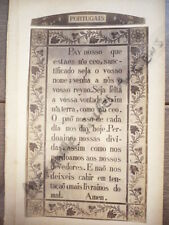 PORTUGAIS.
PAY nosso que
estaes nos ceos, sanc-
tificado seja o vosso
nome: venha a nós o
vosso reyno. Seja feita
a vossa vontade assim
na terra, como no ceo.
O paõ nosso de cada
dia nos day hoje. Per-
doainos nossas divi-
das assim como nos
perdoamos aos nossos
devedores. E naõ nos
deixeis cahir em ten-
taçaõ, mais livrainos do
mal. Amen.